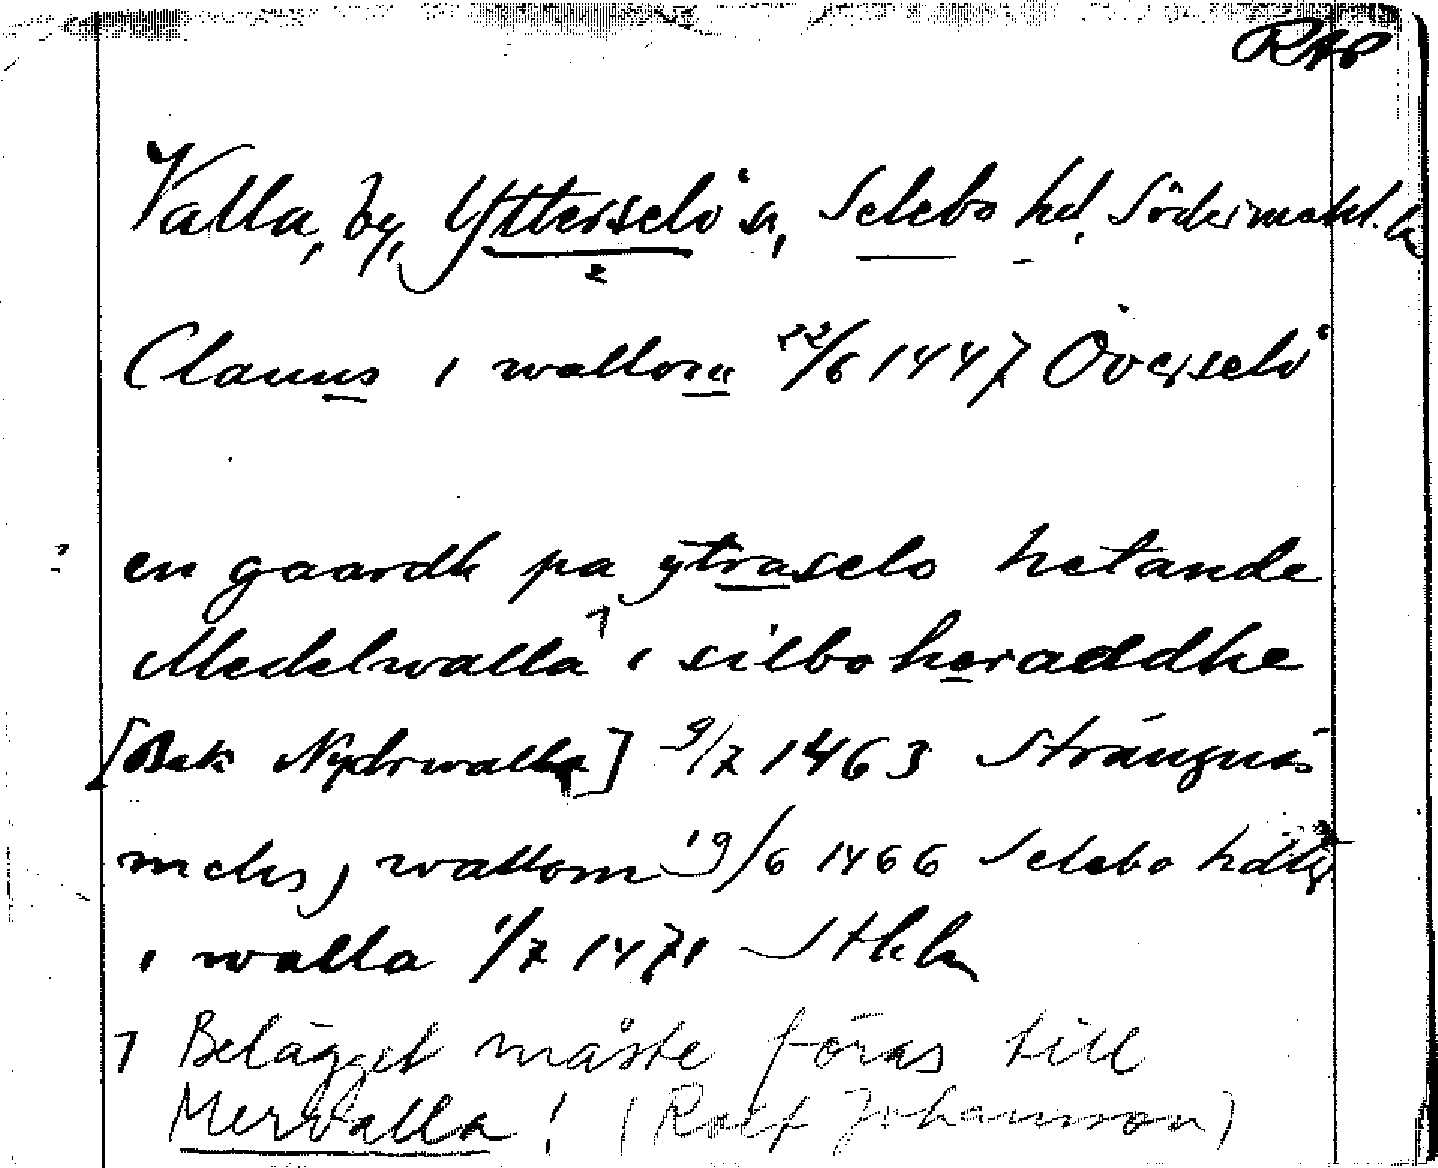 RAP
Valla, by, Ytterselö sn, Selebo hd, Södermanl. l.
Clauus i wallom 22/6 1447 Överselö
en gaardh pa ytraselo hetande
Medelwalla ⁊ i silbo heraddhe
[Bak Nydrwalla] 9/7 1463 Strängnäs
mels j wallom 19/6 1466 Selebo hdtg
i walla 1/7 1471 Sthlm
⁊ Belägget måste föras till
Mervalla! (Rolf Johansson)